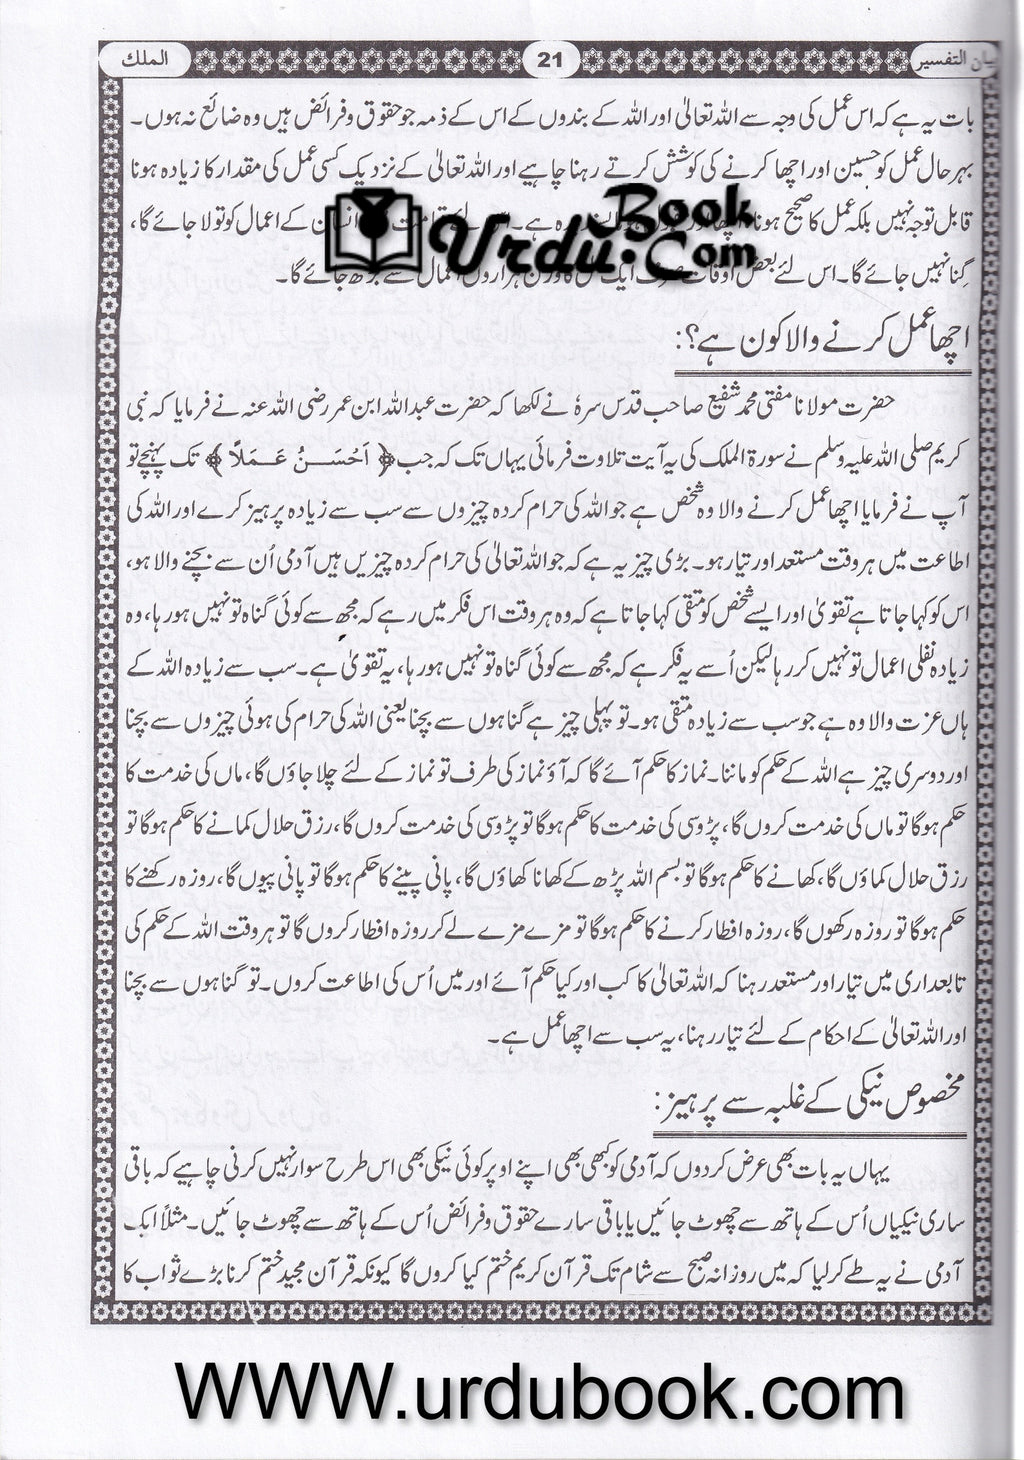 بیان التفسیر
21
الملك
بات یہ ہے کہ اس عمل کی وجہ سے اللہ تعالیٰ اور اللہ کے بندوں کے اس کے ذمہ جو حقوق و فرائض ہیں وہ ضائع نہ ہوں۔
بہر حال عمل کو حسین اور اچھا کرنے کی کوشش کرتے رہنا چاہیے اور اللہ تعالیٰ کے نزدیک کسی عمل کی مقدار کا زیادہ ہونا
قابل توجہ نہیں بلکہ عمل کا صحیح ہونا، ہے۔ انسان کے اعمال کو تولا جائے گا،
گنا نہیں جائے گا۔ اس لئے بعض اوقات ایک ہزاروں اعمال سے بڑھ جائے گا۔
Urdu Book .Com
اچھا عمل کرنے والا کون ہے؟:
حضرت مولانا مفتی محمد شفیع صاحب قدس سرہٗ نے لکھا کہ حضرت عبداللہ ابن عمر رضی اللہ عنہ نے فرمایا کہ نبی
کریم صلی اللہ علیہ وسلم نے سورۃ الملک کی یہ آیت تلاوت فرمائی یہاں تک کہ جب ﴿ اَحْسَنُ عَمَلاً ﴾ تک پہنچے تو
آپ نے فرمایا اچھا عمل کرنے والا وہ شخص ہے جو اللہ کی حرام کردہ چیزوں سے سب سے زیادہ پرہیز کرے اور اللہ کی
اطاعت میں ہر وقت مستعد اور تیار ہو۔ بڑی چیز یہ ہے کہ جو اللہ تعالیٰ کی حرام کردہ چیزیں ہیں آدمی اُن سے بچنے والا ہو،
اس کو کہا جاتا ہے تقویٰ اور ایسے شخص کو متقی کہا جاتا ہے کہ وہ ہر وقت اس فکر میں رہے کہ مجھ سے کوئی گناہ تو نہیں ہو رہا، وہ
زیادہ نفلی اعمال تو نہیں کر رہا لیکن اُسے یہ فکر ہے کہ مجھ سے کوئی گناہ تو نہیں ہو رہا، یہ تقویٰ ہے۔ سب سے زیادہ اللہ کے
ہاں عزت والا وہ ہے جو سب سے زیادہ متقی ہو۔ تو پہلی چیز ہے گناہوں سے بچنا یعنی اللہ کی حرام کی ہوئی چیزوں سے بچنا
اور دوسری چیز ہے اللہ کے حکم کو ماننا۔ نماز کا حکم آئے گا کہ آؤ نماز کی طرف تو نماز کے لئے چلا جاؤں گا، ماں کی خدمت کا
حکم ہوگا تو ماں کی خدمت کروں گا، پڑوسی کی خدمت کا حکم ہوگا تو پڑوسی کی خدمت کروں گا، رزق حلال کمانے کا حکم ہوگا تو
رزق حلال کماؤں گا، کھانے کا حکم ہوگا تو بسم اللہ پڑھ کے کھانا کھاؤں گا، پانی پینے کا حکم ہوگا تو پانی پیوں گا، روزہ رکھنے کا
حکم ہوگا تو روزہ رکھوں گا، روزہ افطار کرنے کا حکم ہوگا تو مزے مزے لے کر روزہ افطار کروں گا تو ہر وقت اللہ کے حکم کی
تابعداری میں تیار اور مستعد رہنا کہ اللہ تعالیٰ کا کب اور کیا حکم آئے اور میں اُس کی اطاعت کروں۔ تو گناہوں سے بچنا
اور اللہ تعالیٰ کے احکام کے لئے تیار رہنا، یہ سب سے اچھا عمل ہے۔
مخصوص نیکی کے غلبہ سے پرہیز:
یہاں یہ بات بھی عرض کردوں کہ آدمی کو کبھی بھی اپنے اوپر کوئی نیکی بھی اس طرح سوار نہیں کرنی چاہیے کہ باقی
ساری نیکیاں اُس کے ہاتھ سے چھوٹ جائیں یا باقی سارے حقوق و فرائض اُس کے ہاتھ سے چھوٹ جائیں۔ مثلاً ایک
آدمی نے یہ طے کر لیا کہ میں روزانہ صبح سے شام تک قرآن کریم ختم کیا کروں گا کیونکہ قرآن مجید ختم کرنا بڑے ثواب کا
WWW.urdubook.com